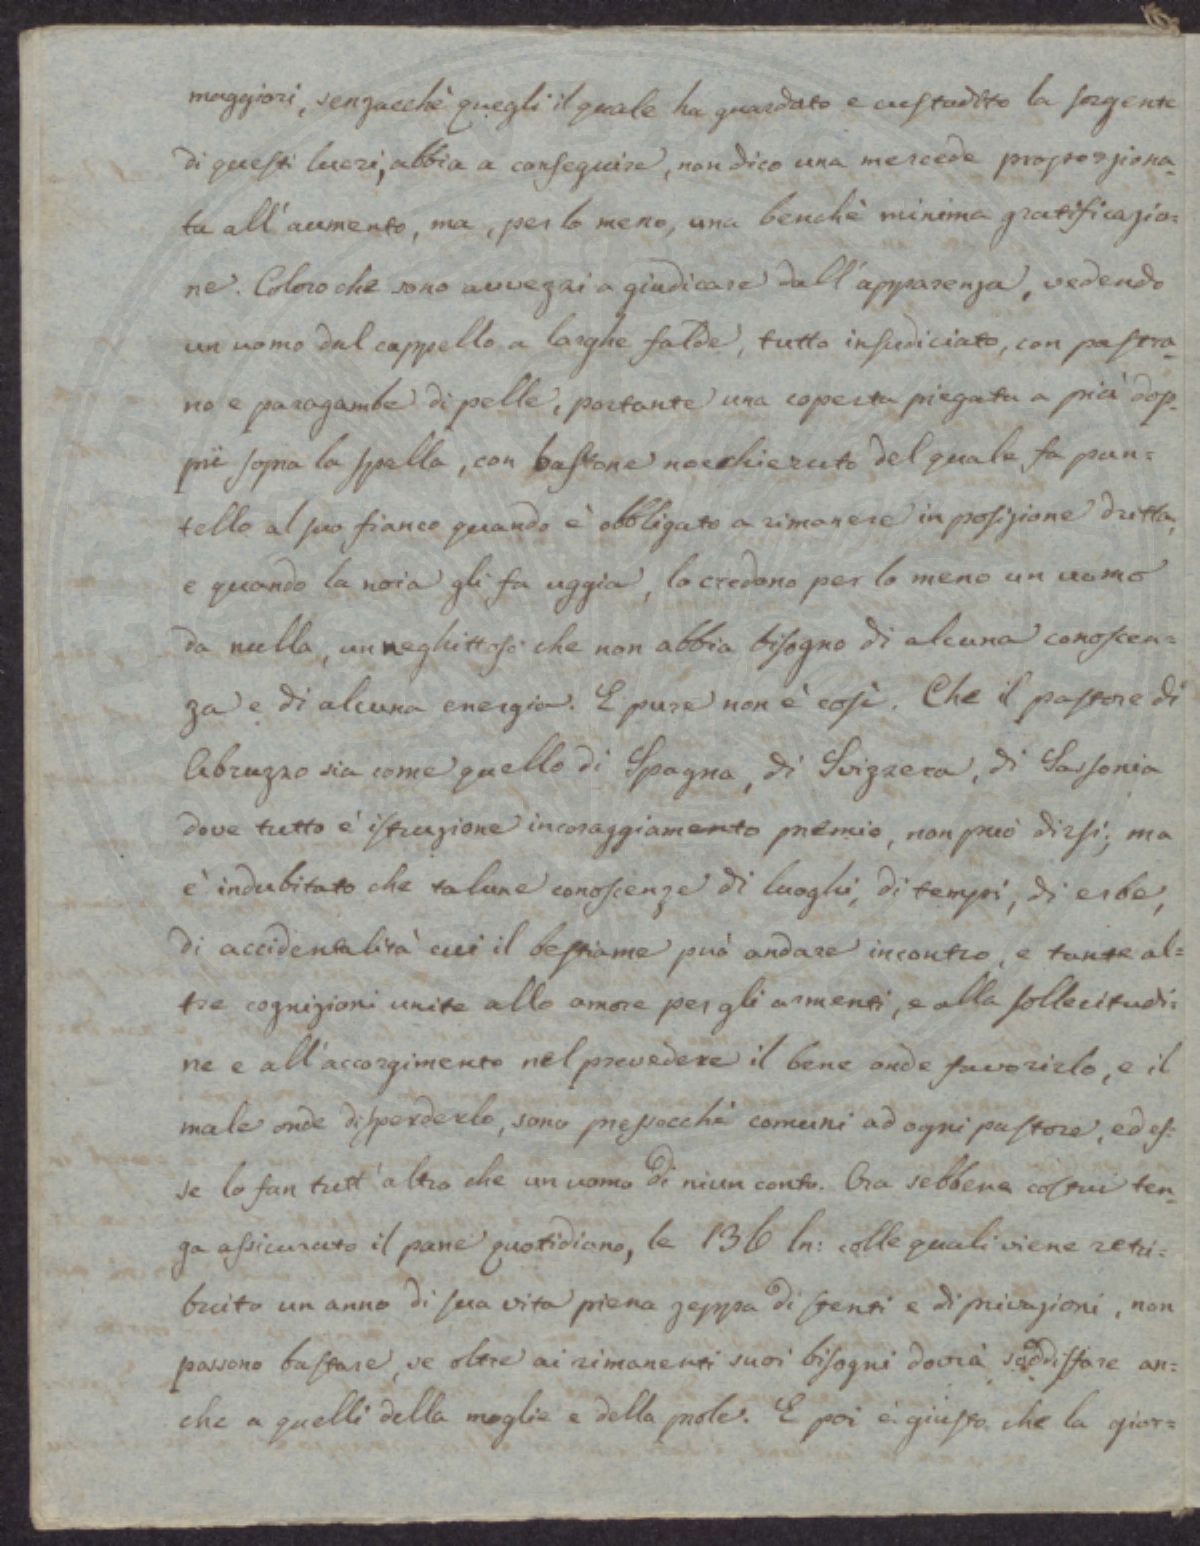 maggiori, senzacchè quegli il quale ha guardato e custodito la sorgente
di questi lucri, abbia a conseguire, non dico una mercede proporziona-
ta all'aumento, ma, per lo meno, una benchè minima gratificazio=
ne. Coloro che sono avvezzi a giudicare dall'apparenza, vedendo
un uomo dal cappello a larghe falde, tutto insudiciato, con pastra-
no e paragambe di pelle, portante una coperta piegata a più dop-
pii sopra la spalla, con bastone nocchieruto del quale fa pun=
tello al suo fianco quando è obbligato a rimanere in posizione dritta,
e quando la noia gli fa uggia, lo credono per lo meno un uomo
da nulla, un neghittoso che non abbia bisogno di alcuna conoscen=
za e di alcuna energia. E pure non è così. Che il pastore di
Abruzzo sia come quello di Spagna, di Svizzera, di Sassonia
dove tutto è istruzione incoraggiamento premio, non può dirsi; ma
è indubitato che talune conoscenze di luoghi, di tempi, di erbe,
di accidentalità cui il bestiame può andare incontro, e tante al=
tre cognizioni unite allo amore per gli armenti, e alla sollecitudi=
ne e all'accorgimento nel prevedere il bene onde favorirlo, e il
male onde disperderlo, sono pressocchè comuni ad ogni pastore, ed es=
se lo fan tutt'altro che un uomo di niun conto. Ora sebbene costui ten-
ga assicurato il pane quotidiano, le 136 ln: colle quali viene retri=
buito un anno di sua vita piena zeppa di stenti e di privazioni, non
possono bastare, se oltre ai rimanenti suoi bisogni dovrà soddisfare an=
che a quelli della moglie e della prole. E poi è giusto che la gior=